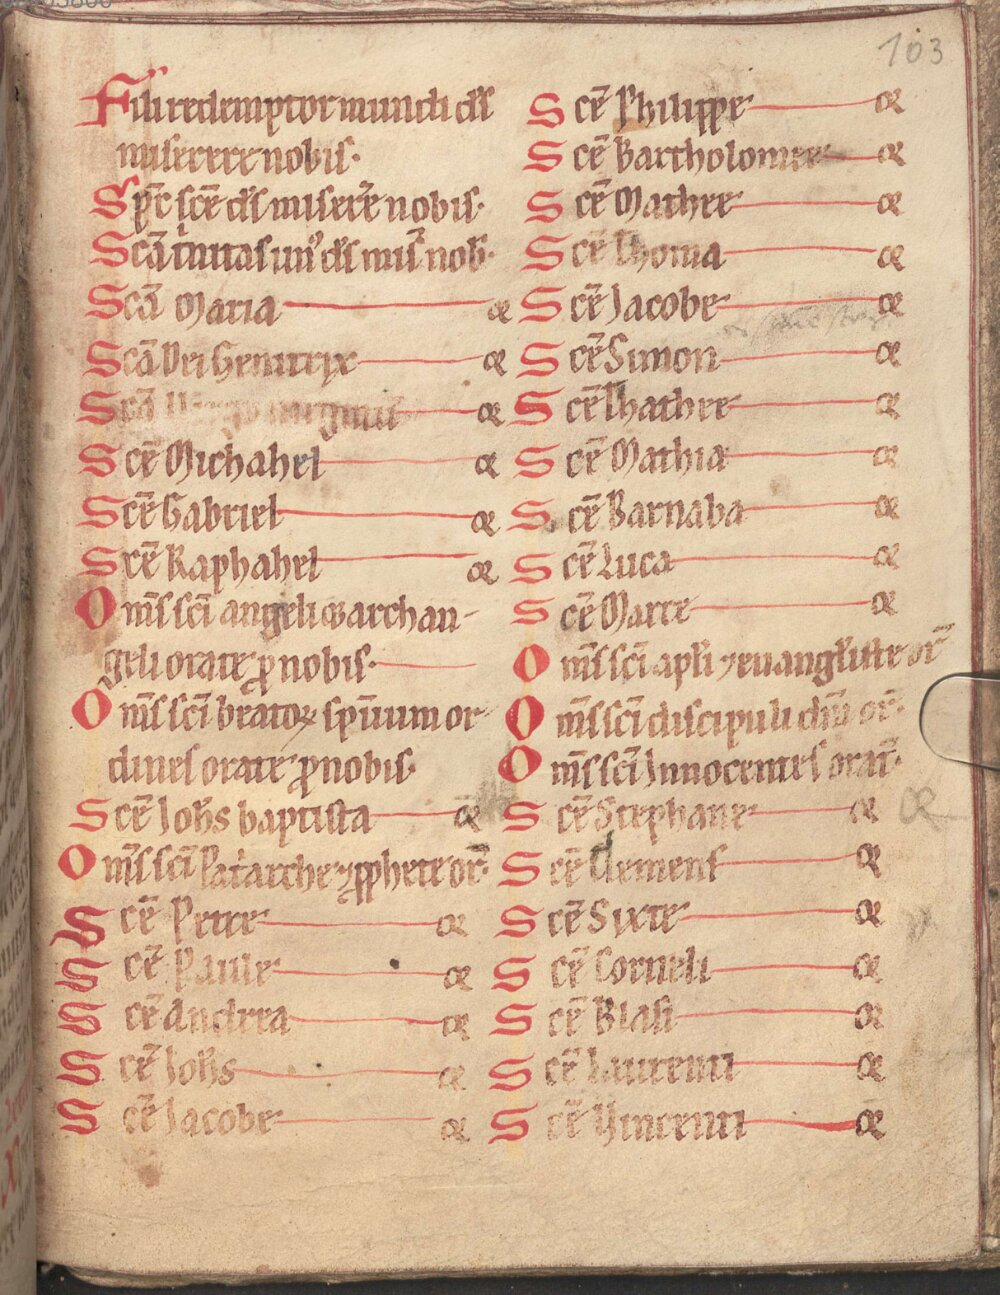 103
Fili redemptor mundi d̄s
miserere nobis.
Sp̄c sc̄e d̄s miserē nobis.
Scā t͛nitas un᷒ d̄s mis͛ nob̄.
Scā Maria or̄
Scā Dei Genitrix or̄
Scā Virgo virginū or̄
Scē Michahel or̄
Scē Gabriel or̄
Scē Raphahel or̄
Om̄s sc̄i angeli & archan-
geli orate ꝓ nobis.
Om̄s sc̄i beatoꝝ spirituum or-
dines orate ꝓ nobis.
Scē Joh̄s baptista or̄
Om̄s sc̄i Pat͛arche ⁊ ꝓphete or̄
Scē Petre or̄
Scē Paule or̄
Scē Andrea or̄
Scē Joh̄s or̄
Scē Jacobe or̄
Scē Philippe or̄
Scē Bartholomee or̄
Scē Mathee or̄
Scē Thoma or̄
Scē Jacobe or̄
Scē Simon or̄
Scē Thathee or̄
Scē Mathia or̄
Scē Barnaba or̄
Scē Luca or̄
Scē Marce or̄
Om̄s sc̄i apl̄i ⁊ euangl̄iste or̄
Om̄s sc̄i discipuli dn̄i or̄.
Om̄s sc̄i Innocentes orat̄.
Scē Stephane or̄
Scē Clemens or̄
Scē Sixte or̄
Scē Corneli or̄
Scē Blasi or̄
Scē Laurenti or̄
Scē Vincenti or̄